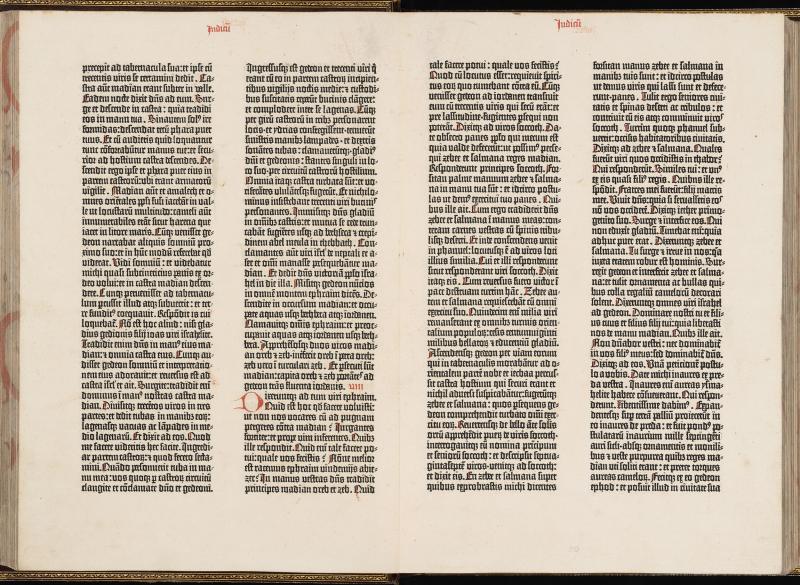 Judicū
precepit ad tabernacula sua: et ipse cū
trecentis viris se certamini dedit. Ca-
stra aūt madian erant subter in valle.
Eadem nocte dixit dn̄s ad eum. Sur-
ge et descende in castra: quia tradidi
eos in manu tua. Sin autem sol9 ire
formidas: descendat tecū phara puer
tuus. Et cū audieris quid loquantur
tunc cōfortabūtur manus tue: et secu-
rior ad hostium castra descendes. De-
scendit ergo ipse et phara puer eius in
partem castrorū: vbi erant armatorū
vigilie. Madian aūt et amalech et o-
mnes orientales ppli fusi iacebāt in val-
le ut locustarū multitudo: cameli aūt
innumerabiles erant sicut harena que
iacet in litore maris. Cūqȝ venisset ge-
deon narrabat aliquis somniū pro-
ximo suo: et in hūc modū referebat qd
viderat. Vidi somniū: et videbatur
michi quasi subcinericius panis ex or-
deo volui: et in castra madian descen-
dere. Cunqȝ pervenisset ad tabernacu-
lum percussit illud atqȝ subvertit: et ter-
re fundit9 coequavit. Respōdit is cui
loquebat̄. Nō est hoc aliud: nisi gla-
dius gedeonis filij ioas viri israhelite.
Tradidit enim dn̄s in man9 eius ma-
dian: et omnia castra eius. Cunqȝ au-
disset gedeon somniū et interpretatio-
nem eius adoravit: et reversus est ad
castra isrł et ait. Surgite: tradidit eni
dominus ī man9 nostras castra ma-
dian. Divisitqȝ trecentos viros in tres
partes: et dedit tubas in manibȝ eoȝ:
lagenasqȝ vacuas ac lāpades in me-
dio lagenarū. Et dixit ad eos. Quod
me facere videritis hec facite. Ingredi-
ar partem castroȝ: et quod fecero secta-
mini. Quādo personuerit tuba in ma-
nu mea: vos quoqȝ p castroȝ circuitū
clangite et cōclamate dn̄o et gedeoni.
Ingressusqȝ est gedeon et trecenti viri q̄
erant cū eo in partem castroȝ incipien-
tibus vigilijs noctis medie: et custodi-
bus suscitatis ceperūt bucinis clāgere:
et complodere inter se lagenas. Cūqȝ
per girū castroȝ in tribȝ personarent
locis et ydrias confregissent: tenuerūt
sinistris manibȝ lampades et dextris
sonātes tubas: clamaveruntqȝ: gladi9
dn̄i et gedeonis: stantes singuli in lo-
co suo per circuitū castrorū hostilium.
Omnia itaqȝ castra turbata sūt: et vo-
ciferātes ululātesqȝ fugerūt. Et nichilo-
minus insistebant trecenti viri bucinis
personantes. Immisitqȝ dn̄s gladiū
in omibȝ castris: et mutua se cede trun-
cabāt fugiētes usqȝ ad bethseca et crepi-
dinem abel meula in thebbath. Con-
clamantes aūt viri isrł de neptali et a-
ser et om̄i manasse persequebāntur ma-
dian. Et dedit dn̄s victoriā pplo isra-
hel in die illa. Misitqȝ gedeon nūcios
in omnē montem ephraim dicēs. De-
scendite in occursum madian: et occu-
pate aquas usqȝ bethbera atqȝ iordanem.
Clamavitqȝ om̄is ephraim: et preoc-
cupavit aquas atqȝ iordanem usqȝ beth-
bera. Apprehēsosqȝ duos viros madi-
an oreb et zeb: interfecit oreb ī petra oreb:
zeb vero ī torculari zeb. Et psecuti sūt
madian: capita oreb et zeb portātes ad
gedeon trās fluenta iordanis. VIII
Dixeruntqȝ ad eum viri ephraim.
Quid est hoc qd facere voluisti:
ut non nos vocares cū ad pugnam
pergeres cōtra madian? Iurgantes
fortiter: et prope vim inferentes. Quibȝ
ille respondit. Quid eni tale facere po-
tui: quale vos fecistis? Nōne melior
est racemus ephraim vindemijs abie-
zer? In manus vestras dn̄s tradidit
principes madian oreb et zeb. Quid
Judicū
tale facere potui: quale vos fecistis?
Quod cū locutus esset: requievit spiri-
tus eoȝ quo tumebant cōtra eū. Cūqȝ
venisset gedeon ad iordanem transivit
eum cū trecentis viris qui secū erāt: et
pre lassitudine fugientes psequi non
poterāt. Dixitqȝ ad viros soccoth. Da-
te obsecro panes pplo qui mecum est
quia valde defecerūt: ut possim9 perse-
qui zebee et salmana reges madian.
Responderunt principes soccoth. For-
sitan palme manuum zebee et salma-
na in manu tua sūt: et idcirco postu-
las ut dem9 exercitui tuo panes. Qui-
bus ille ait. Cum ergo tradiderit dn̄s
zebee et salmana ī manus meas: con-
teram carnes vestras cū spinis tribu-
lisqȝ deserti. Et inde conscendens venit
in phanuel: locutusqȝ ē ad viros loci
illius similia. Cui et illi responderunt
sicut responderant viri soccoth. Dixit
itaqȝ eis. Cum reversus fuero victor ī
pace destruam turrim hāc. Zebee au-
tem et salmana requiescebāt cū omni
exercitu suo. Quindecim eni milia viri
remanserant ex omnibȝ turmis orien-
talium populoȝ: cesis centum viginti
milibus bellatoȝ et educentiū gladiū.
Ascendensqȝ gedeon per viam eorum
qui in tabernaculis morabātur ad o-
rientalem partē nobe et iecbaa percus-
sit castra hostium qui securi erant et
nichil adversi suspicabātur: fugerūtqȝ
zebee et salmana: quos psequens ge-
deon comprehendit turbato om̄i exer-
citu eoȝ. Revertensqȝ de bello āte solis
ortū apprehēdit puerū ex viris soccoth:
interrogavitqȝ eū nomina principum
et seniorū soccoth: et descripsit septua-
gintaseptē viros: venitqȝ ad soccoth:
et dixit eis. En zebee et salmana super
quibus exprobrastis michi dicentes
forsitan manus zebee et salmana in
manibȝ tuis sunt: et idcirco postulas
ut demus viris qui lassi sunt et defece-
runt panes. Tulit ergo seniores civi-
tatis et spinas deserti ac tribulos: et
contrivit cū eis atqȝ comminuit viros
soccoth. Turrim quoqȝ phanuel sub-
vertit: occisis habitatoribus civitatis.
Dixitqȝ ad zebee et salmana. Quales
fuerūt viri quos occidistis in thabor?
Qui responderūt. Similes tui: et un9
ex eis quasi fili9 regis. Quibus ille re-
spōdit. Fratres mei fuerūt: filij matris
mee. Vivit dn̄s: quia si servassetis eos
nō vos occiderē. Dixitqȝ iether primo-
genito suo. Surge et interfice eos. Qui
non eduxit gladiū. Timebat eni: quia
adhuc puer erat. Dixeruntqȝ zebee et
salmana. Tu surge et irrue in nos: q̄a
iuxta etatem robur est hominis. Sur-
rexit gedeon et interfecit zebee et salma-
na: et tulit ornamenta ac bullas qui-
bus colla regaliū cameloȝ decorari
solent. Dixeruntqȝ omnes viri israhel
ad gedeon. Dominare nostri tu et fili-
us tuus et filius filij tui: quia liberasti
nos de manu madian. Quibȝ ille ait.
Non dn̄abor vestri: nec dominabit̄
in vos fili9 meus: sed dominabit̄ dn̄s.
Dixitqȝ ad eos. Unā peticionē postu-
lo a vobis. Date michi inaures ex pre-
da vestra. Inaures eni aureas ysma-
helite habere cōsueverant. Qui respon-
derunt. Libentissime dabim9. Expan-
dentesqȝ sup terrā palliū proiecerūt in
eo inaures de preda: et fuit pond9 po-
stulatarū inaurium mille septingēti
auri sicli: absqȝ ornamentis et monili-
bus et veste purpurea quibȝ reges ma-
dian uti soliti erant: et preter torques
aureas cameloȝ. Fecitqȝ ex eo gedeon
ephod: et posuit illud in civitate sua